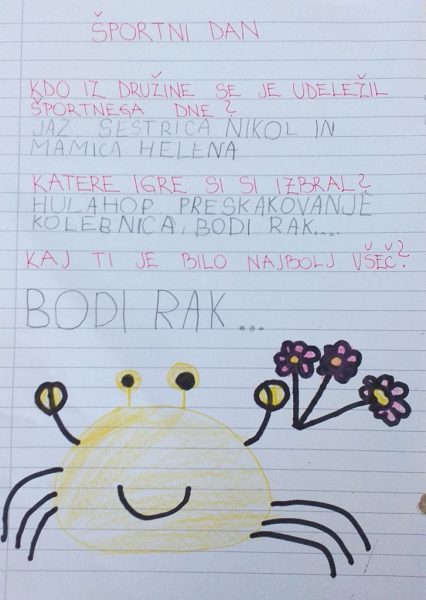 ŠPORTNI DAN
KDO IZ DRUŽINE SE JE UDELEŽIL
ŠPORTNEGA DNE?
JAZ, SESTRICA NIKOL IN
MAMICA HELENA
KATERE IGRE SI SI IZBRAL?
HULAHOP, PRESKAKOVANJE
KOLEBNICA, BODI RAK....
KAJ TI JE BILO NAJBOLJ VŠEČ?
BODI RAK...